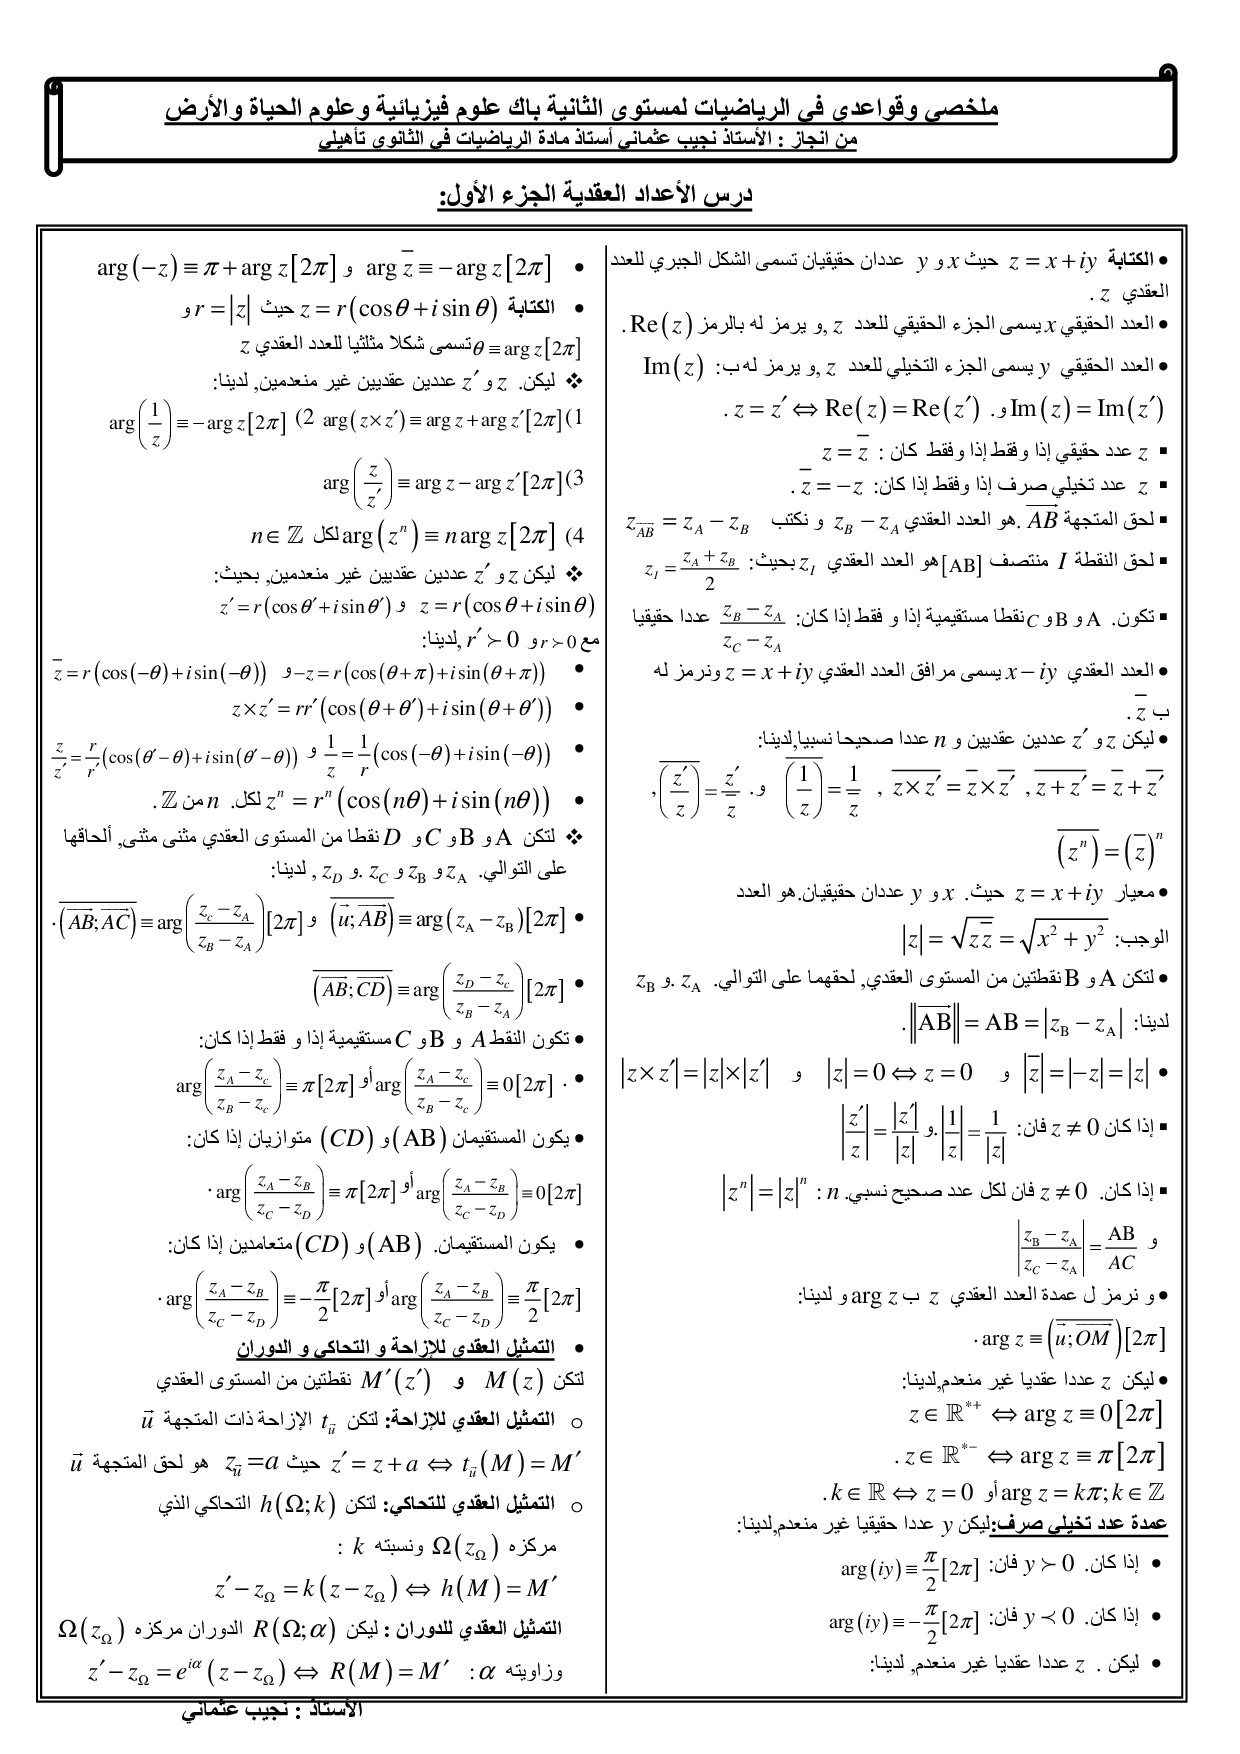 ملخصي وقواعدي في الرياضيات لمستوى الثانية باك علوم فيزيائية وعلوم الحياة والأرض
من انجاز : الأستاذ نجيب عثماني أستاذ مادة الرياضيات في الثانوي تأهيلي
درس الأعداد العقدية الجزء الأول:
• الكتابة z = x + iy حيث x و y عددان حقيقيان تسمى الشكل الجبري للعدد
العقدي z .
• العدد الحقيقي x يسمى الجزء الحقيقي للعدد z ,و يرمز له بالرمز Re(z) .
• العدد الحقيقي y يسمى الجزء التخيلي للعدد z ,و يرمز له ب: Im(z)
z = z′ ⇔ Re(z) = Re(z′) و. Im(z) = Im(z′) .
▪ z عدد حقيقي إذا وفقط إذا وفقط كان : z = z̅
▪ z عدد تخيلي صرف إذا وفقط إذا كان: z̅ = −z .
▪ لحق المتجهة AB⃗ .هو العدد العقدي z_B − z_A و نكتب z_AB⃗ = z_A − z_B
▪ لحق النقطة I منتصف [AB] هو العدد العقدي z_I بحيث: z_I = (z_A + z_B)/2
▪ تكون. A و B و C نقطا مستقيمية إذا و فقط إذا كان: (z_B − z_A)/(z_C − z_A) عددا حقيقيا
• العدد العقدي x − iy يسمى مرافق العدد العقدي z = x + iy ونرمز له
ب z̅ .
• ليكن z و z′ عددين عقديين و n عددا صحيحا نسبيا,لدينا:
\overline{z + z′} = z̅ + z̅′ , \overline{z × z′} = z̅ × z̅′ , \overline{(1/z)} = 1/z̅ و. \overline{(z′/z)} = z̅′/z̅ ,
\overline{(zⁿ)} = (z̅)ⁿ
• معيار z = x + iy حيث. x و y عددان حقيقيان.هو العدد
الوجب: |z| = √(z z̅) = √(x² + y²)
• لتكن A و B نقطتين من المستوى العقدي, لحقهما على التوالي. z_A .و z_B
لدينا: ‖AB⃗‖ = AB = |z_B − z_A| .
• |z̅| = |−z| = |z| و |z| = 0 ⇔ z = 0 و |z × z′| = |z| × |z′|
▪ إذا كان z ≠ 0 فان: |1/z| = 1/|z| .و |z′/z| = |z′|/|z|
▪ إذا كان. z ≠ 0 فان لكل عدد صحيح نسبي. n : |zⁿ| = |z|ⁿ
و |(z_B − z_A)/(z_C − z_A)| = AB/AC
• و نرمز ل عمدة العدد العقدي z ب arg z و لدينا:
arg z ≡ \overline{(u⃗; OM⃗)} [2π] .
• ليكن z عددا عقديا غير منعدم,لدينا:
z ∈ ℝ*⁺ ⇔ arg z ≡ 0[2π]
z ∈ ℝ*⁻ ⇔ arg z ≡ π[2π] .
k ∈ ℝ ⇔ z = 0 أو arg z = kπ; k ∈ ℤ .
عمدة عدد تخيلي صرف:ليكن y عددا حقيقيا غير منعدم,لدينا:
• إذا كان. y ≻ 0 فان: arg(iy) ≡ π/2 [2π]
• إذا كان. y ≺ 0 فان: arg(iy) ≡ −π/2 [2π]
• ليكن . z عددا عقديا غير منعدم, لدينا:
• arg z̅ ≡ −arg z[2π] و arg(−z) ≡ π + arg z[2π]
• الكتابة z = r(cos θ + i sin θ) حيث r = |z| و
θ ≡ arg z[2π] تسمى شكلا مثلثيا للعدد العقدي z
❖ ليكن. z و z′ عددين عقديين غير منعدمين, لدينا:
1) arg(z × z′) ≡ arg z + arg z′[2π] 2) arg(1/z) ≡ −arg z[2π]
3) arg(z/z′) ≡ arg z − arg z′[2π]
4) arg(zⁿ) ≡ n arg z[2π] لكل n ∈ ℤ
❖ ليكن z و z′ عددين عقديين غير منعدمين, بحيث:
z = r(cos θ + i sin θ) و z′ = r(cos θ′ + i sin θ′)
مع r ≻ 0 و r′ ≻ 0 ,لدينا:
• −z = r(cos(θ + π) + i sin(θ + π)) و z̅ = r(cos(−θ) + i sin(−θ))
• z × z′ = rr′(cos(θ + θ′) + i sin(θ + θ′))
• 1/z = 1/r (cos(−θ) + i sin(−θ)) و z/z′ = r/r′ (cos(θ′ − θ) + i sin(θ′ − θ))
• zⁿ = rⁿ(cos(nθ) + i sin(nθ)) لكل. n من ℤ .
❖ لتكن A و B و C و D نقطا من المستوى العقدي مثنى مثنى, ألحاقها
على التوالي. z_A و z_B و z_C .و z_D , لدينا:
• \overline{(u⃗; AB⃗)} ≡ arg(z_A − z_B)[2π] و \overline{(AB⃗; AC⃗)} ≡ arg((z_c − z_A)/(z_B − z_A))[2π] .
• \overline{(AB⃗; CD⃗)} ≡ arg((z_D − z_c)/(z_B − z_A))[2π]
• تكون النقط A و B و C مستقيمية إذا و فقط إذا كان:
• . arg((z_A − z_c)/(z_B − z_c)) ≡ 0[2π] أو arg((z_A − z_c)/(z_B − z_c)) ≡ π[2π]
• يكون المستقيمان (AB) و (CD) متوازيان إذا كان:
arg((z_A − z_B)/(z_C − z_D)) ≡ 0[2π] أو arg((z_A − z_B)/(z_C − z_D)) ≡ π[2π] .
• يكون المستقيمان. (AB) و (CD) متعامدين إذا كان:
arg((z_A − z_B)/(z_C − z_D)) ≡ π/2 [2π] أو arg((z_A − z_B)/(z_C − z_D)) ≡ −π/2 [2π] .
• التمثيل العقدي للإزاحة و التحاكي و الدوران
لتكن M(z) و M′(z′) نقطتين من المستوى العقدي
○ التمثيل العقدي للإزاحة: لتكن t_u⃗ الإزاحة ذات المتجهة u⃗
z′ = z + a ⇔ t_u⃗(M) = M′ حيث z_u⃗ = a هو لحق المتجهة u⃗
○ التمثيل العقدي للتحاكي: لتكن h(Ω; k) التحاكي الذي
مركزه Ω(z_Ω) ونسبته k :
z′ − z_Ω = k(z − z_Ω) ⇔ h(M) = M′
التمثيل العقدي للدوران : ليكن R(Ω; α) الدوران مركزه Ω(z_Ω)
وزاويته α : z′ − z_Ω = e^{iα}(z − z_Ω) ⇔ R(M) = M′
الأستاذ : نجيب عثماني